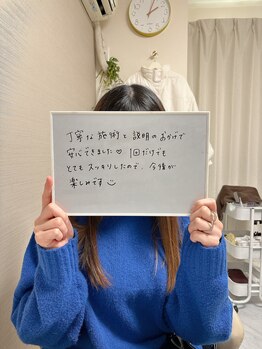 丁寧な施術と説明のおかげで
安心できました♡ 1回だけでも
とてもスッキリしたので、今後が
楽しみです☺